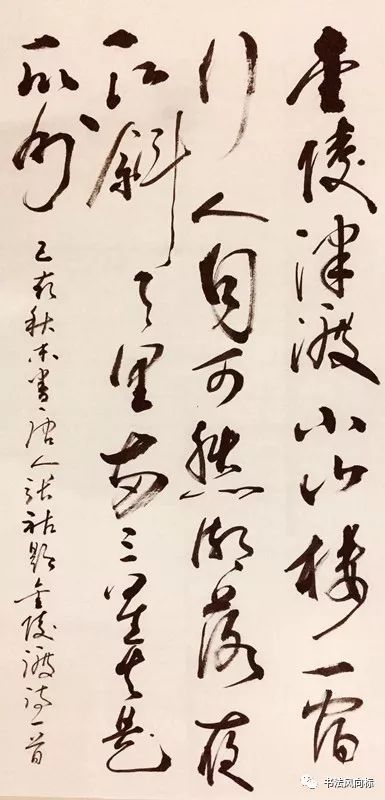 金陵津渡小山樓一宿
行人自可愁潮落夜
江斜月里兩三星火是
瓜州
己亥秋末書唐人張祜題金陵渡詩一首
书法风向标